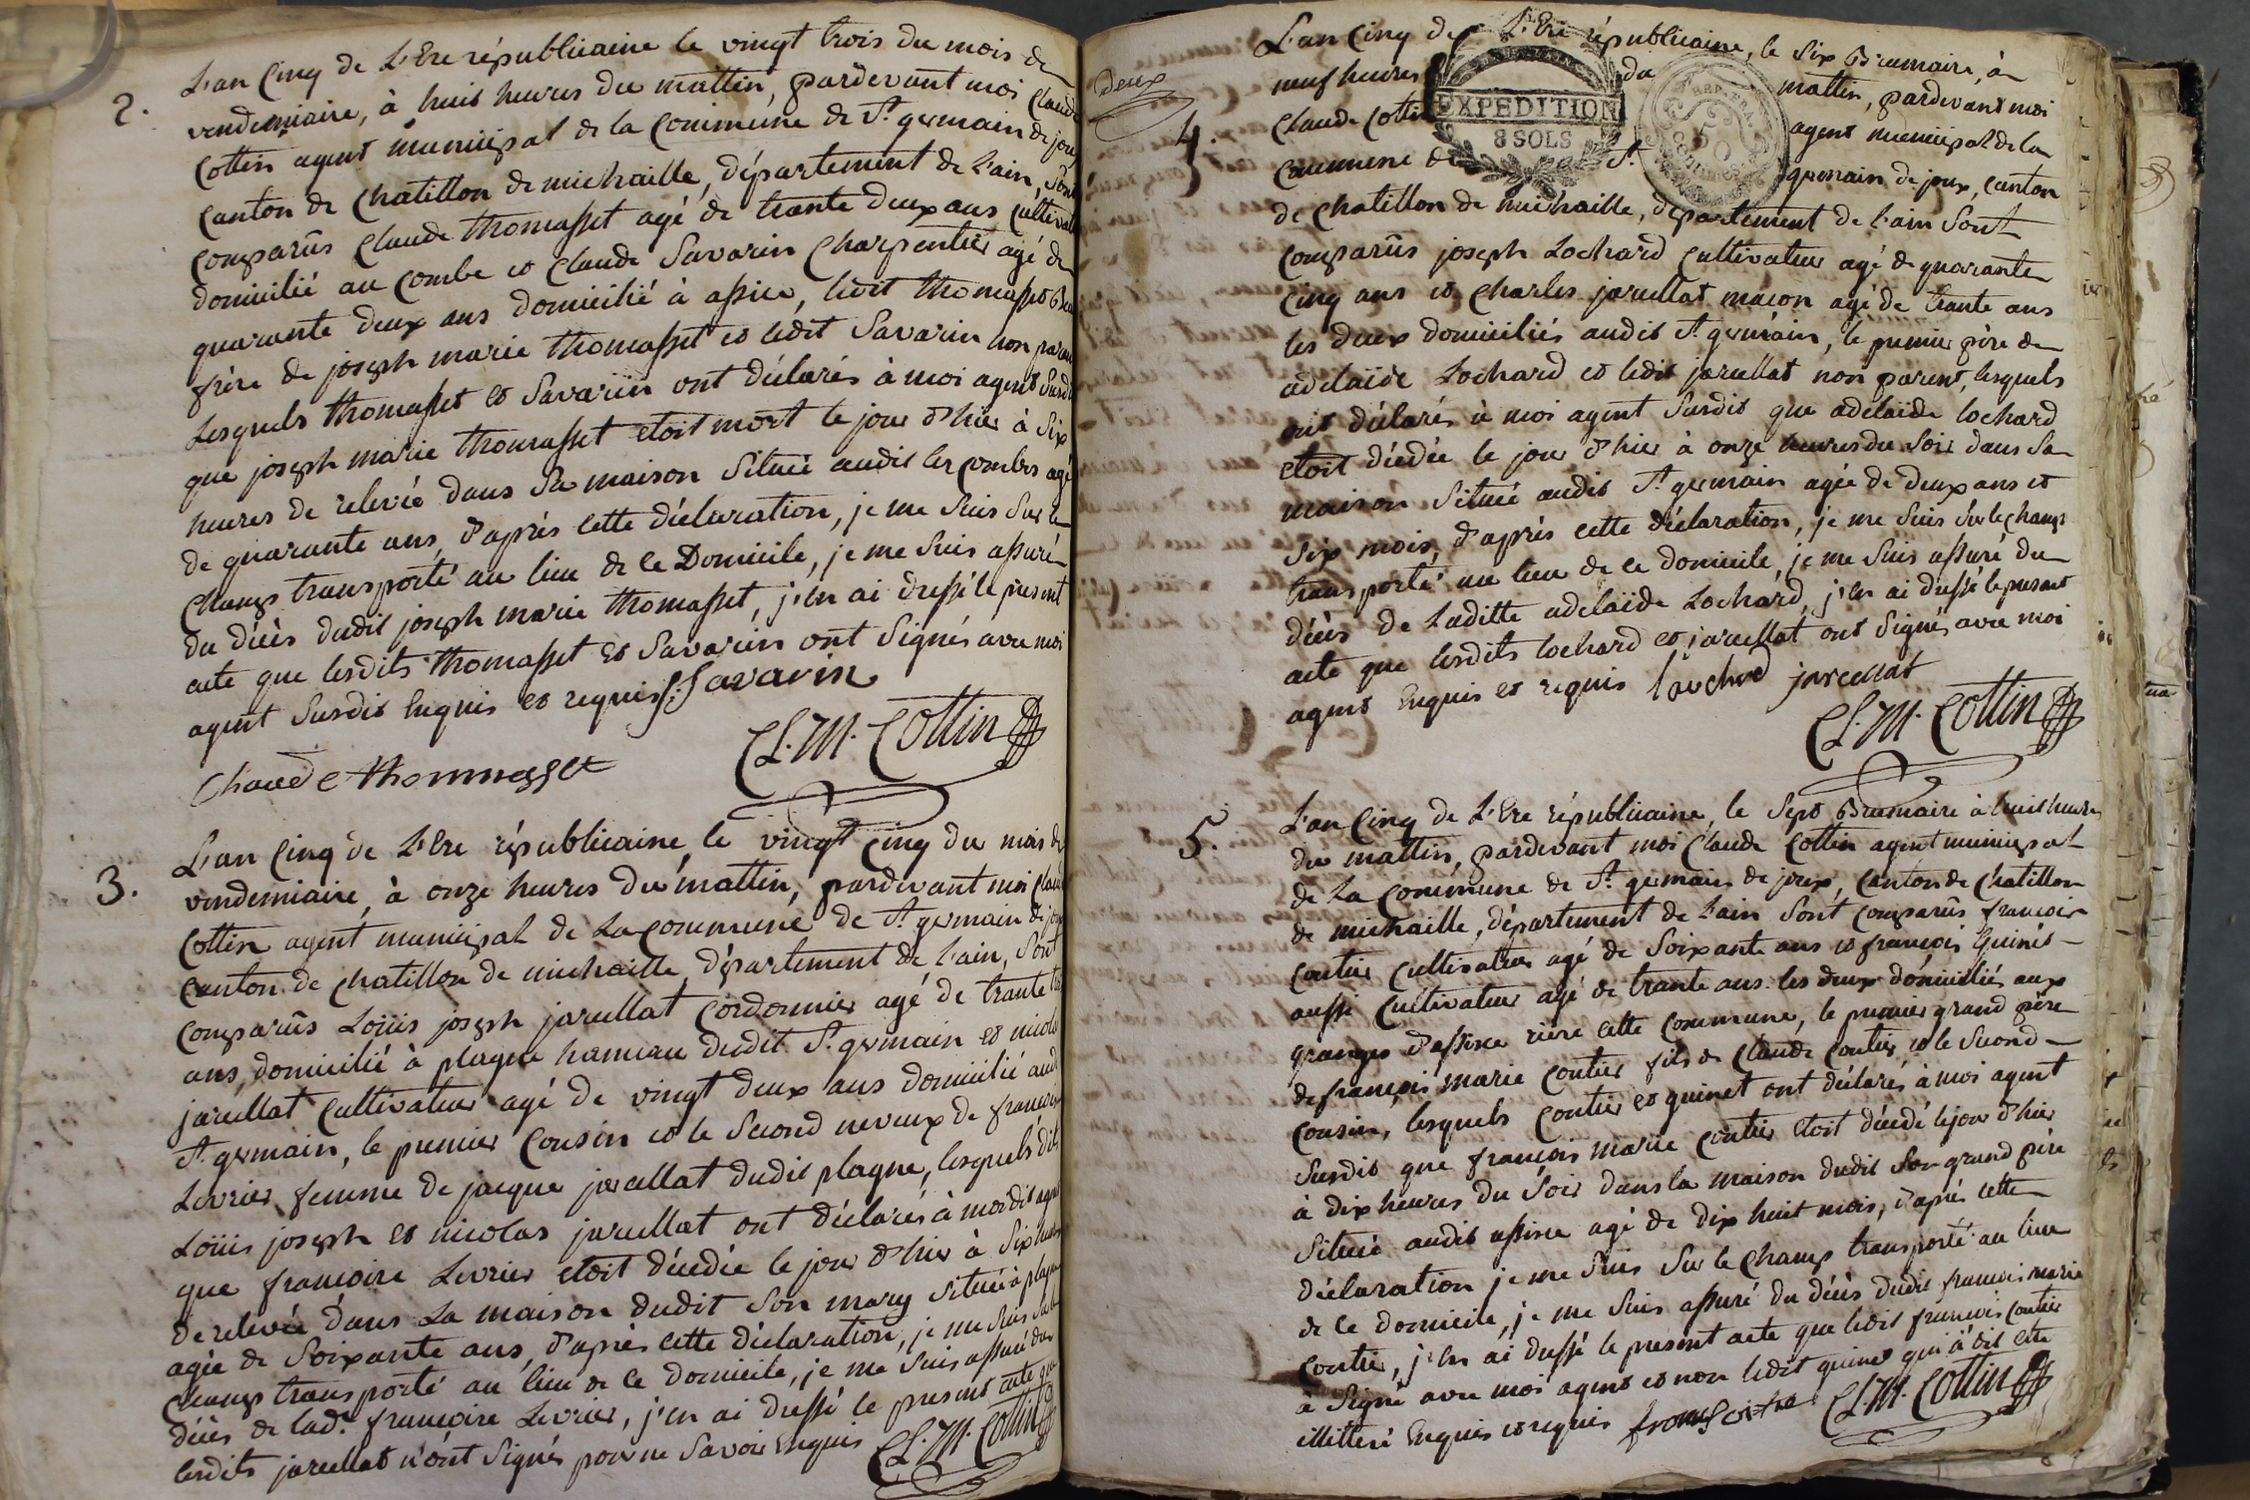 2.
L'an Cinq de L'Ere républicaine le vingt trois du mois de
vendemiaire, à huit heures du mattin, pardevant moi Claude
Cottin agent municipal de la Commune de St. germain de joux
Canton de Chatillon de michaille, département de L'ain, Sont
comparûs Claude thomasset agé de trante deux ans cultivat
domicilié au combe et Claude Savarin Charpentier agé de
quarante deux ans domicilié à assice, ledit thomasset
frère de joseph marie thomasset et ledit Savarin non paren
Lesquels thomasset et Savarin ont déclarés à moi agent Susdi
que joseph marie thomasset etoit mort le jour d'hier à Six
heures de relevée dans Sa maison Située audit les combes agé
de quarante ans, d'après cette déclaration, je me Suis Sur le
Champ transporté au lieu de ce Domicile, je me Suis assuré
du décès dudit joseph marie thomasset, j'en ai dressé le présent
acte que lesdits thomasset et Savarin ont Signés avec moi
agent Susdit Enquis et requis C. Savarin
Claude thommasset CL. M. Cottin
3.
L'an Cinq de L'Ere républicaine, le vingt Cinq du mois de
vendemiaire, à onze heures du mattin, pardevant moi Claud
Cottin agent municipal de La commune de St. germain de joux
Canton de Chatillon de michaille, département de L'ain, Sont
comparûs Loüis joseph jarcellat Cordonnier agé de trante
ans, domicilié à plagne hameau dudit St. germain et nicola
jarcellat Cultivateur agé de vingt deux ans domicilié aud
St. germain, le premier Cousin et le Second neveux de francoise
Levrier femme de jacque jarcellat dudit plagne, lesquels dits
Loüis joseph et nicolas jarcellat ont déclarés à moi dit agent
que francoise Levrier etoit décédée le jour d'hier à Six heures
de relevée dans La maison dudit Son mary Située à plagne
agée de Soixante ans, d'après cette déclaration, je me Suis Sur le
Champ transporté au lieu de ce domicile, je me Suis assuré du
décès de lade. francoise Levrier, j'en ai dressé le present acte que
lesdits jarcellat n'ont Signés pour ne Savoir Enquis CL. M. Cottin
Deux
4.
L'an Cinq de L'Ere républicaine, le Six Brumaire, à
neuf heures du mattin, pardevant moi
Claude Cottin agent municipal de la
EXPEDITION
8 SOLS
REP. FRA.
50
Commune de St. germain de joux, Canton
de Chatillon de michaille, département de L'ain Sont
comparûs joseph Lochard Cultivateur agé de quarante
Cinq ans et Charles jarcellat macon agé de trante ans
les deux domiciliés audit St. germain, le premier père de
adelaïde Lochard et ledit jarcellat non parent, lesquels
ont déclarés à moi agent Susdit que adelaïde lochard
etoit décédée le jour d'hier à onze heures du Soir dans Sa
maison Située audit St. germain agée de deux ans et
Six mois, d'après cette déclaration, je me Suis Sur le Champ
transporté au lieu de ce domicile, je me Suis assuré du
décès de Laditte adelaïde Lochard, j'en ai dressé le present
acte que lesdits lochard et jarcellat ont Signés avec moi
agent Enquis et requis lauchard jarcellat
CL. M. Cottin
5.
L'an Cinq de L'Ere républicaine, le Sept Brumaire à huit heures
du mattin, pardevant moi Claude Cottin agent municipal
de La Commune de St. germain de joux, Canton de Chatillon
de michaille, département de L'ain Sont Comparûs francois
Coutier Cultivateur agé de Soixante ans et francois Guinet
aussi Cultivateur agé de trante ans les deux domiciliés aux
granges d'assice rière cette Commune, le premier grand père
de françois marie Coutier fils de Claude Coutier et le Second
Cousin, lesquels Coutier et guinet ont déclarés à moi agent
Susdit que francois marie Coutier etoit décédé le jour d'hier
à dix heures du Soir dans la maison dudit Son grand père
Située audit assice agé de dix huit mois, d'après cette
déclaration je me Suis Sur le Champ transporté au lieu
de ce domicile, je me Suis assuré du décès dudit francois marie
Coutier, j'en ai dressé le present acte que ledit francois Coutier
à Signé avec moi agent et non ledit guinet qui à dit etre
illitteré Enquis et requis CL. M. Cottin